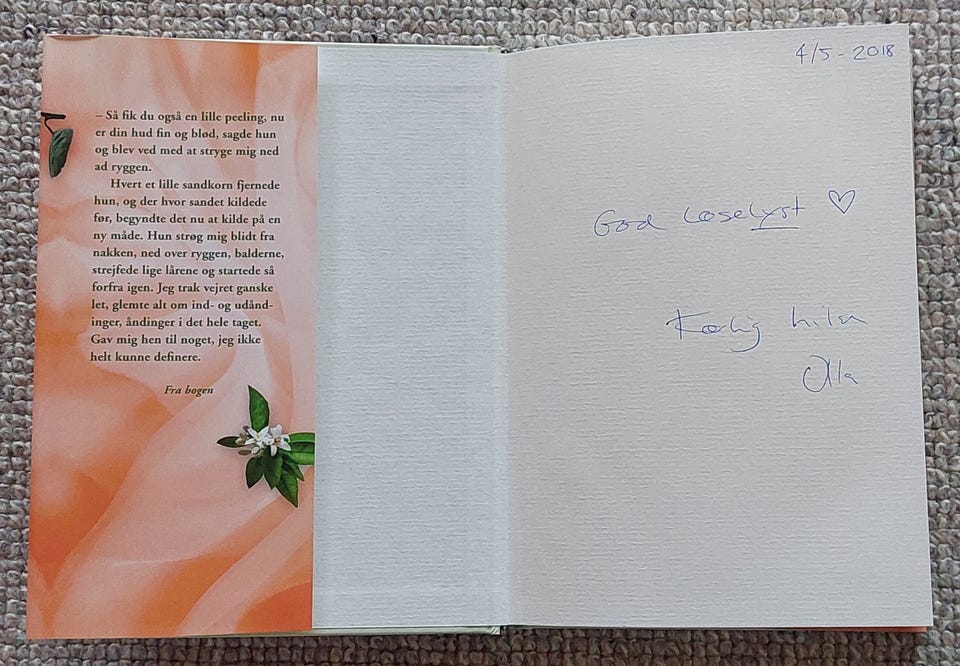 – Så fik du også en lille peeling, nu
er din hud fin og blød, sagde hun
og blev ved med at stryge mig ned
ad ryggen.
Hvert et lille sandkorn fjernede
hun, og der hvor sandet kildede
før, begyndte det nu at kilde på en
ny måde. Hun strøg mig blidt fra
nakken, ned over ryggen, balderne,
strejfede lige lårene og startede så
forfra igen. Jeg trak vejret ganske
let, glemte alt om ind- og udånd-
inger, åndinger i det hele taget.
Gav mig hen til noget, jeg ikke
helt kunne definere.
Fra bogen
4/5 - 2018
God Læselyst ♡
Kærlig hilsn